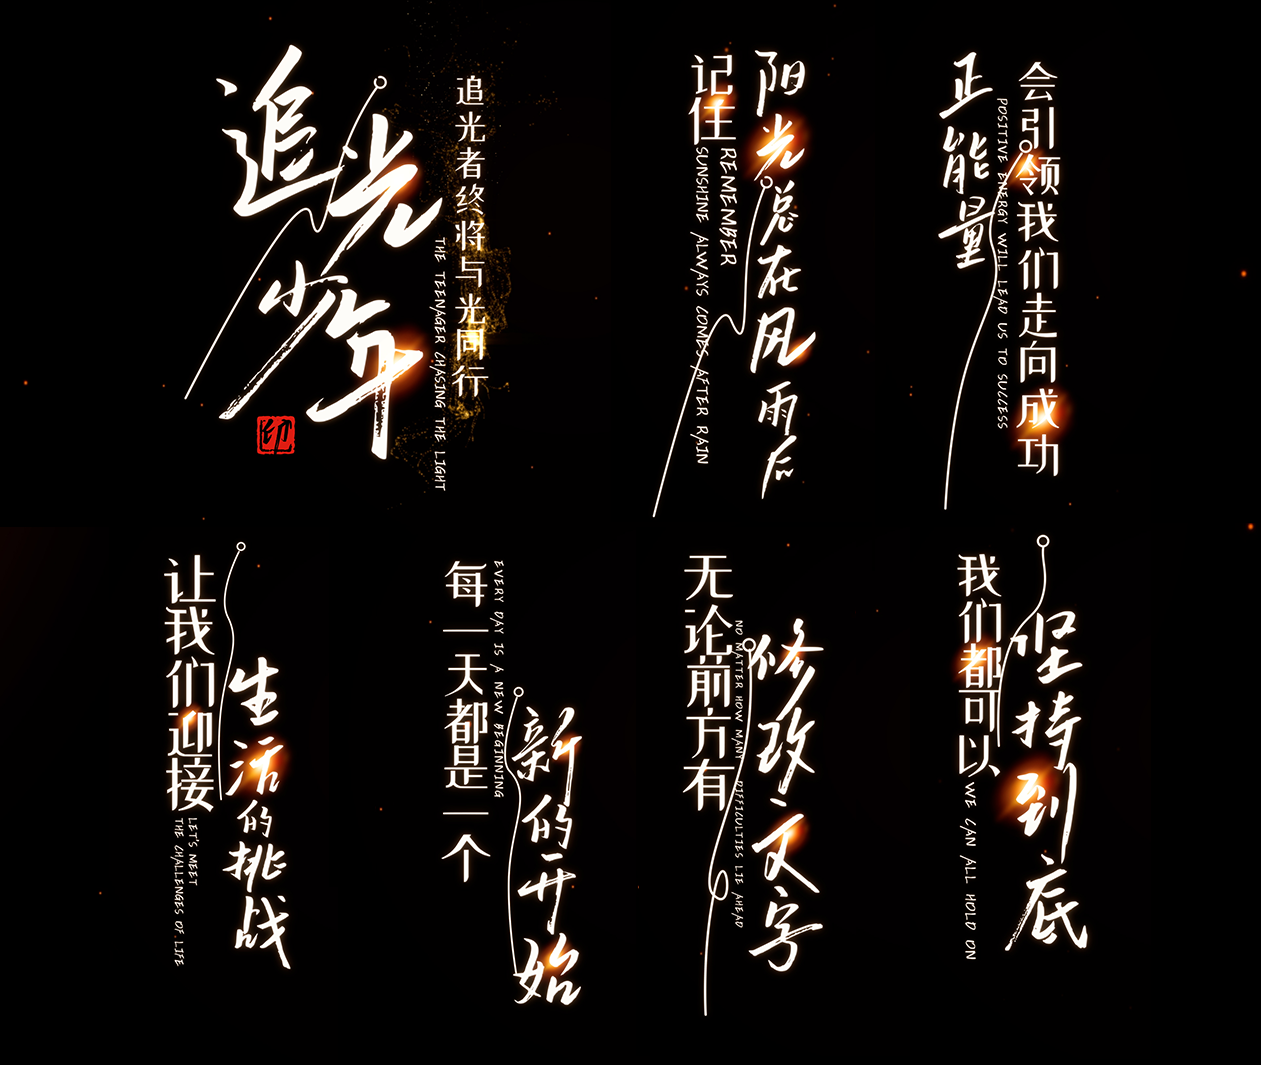 追光少年
追光者终将与光同行
THE TEENAGER CHASING THE LIGHT
记住
阳光总在风雨后
REMEMBER
SUNSHINE ALWAYS COMES AFTER RAIN
正能量
会引领我们走向成功
POSITIVE ENERGY WILL LEAD US TO SUCCESS
让我们迎接
生活的挑战
LET'S MEET
THE CHALLENGES OF LIFE
每一天都是一个
EVERY DAY IS A NEW BEGINNING
新的开始
无论前方有
NO MATTER HOW MANY DIFFICULTIES LIE AHEAD
修改文字
我们都可以
WE CAN ALL HOLD ON
坚持到底